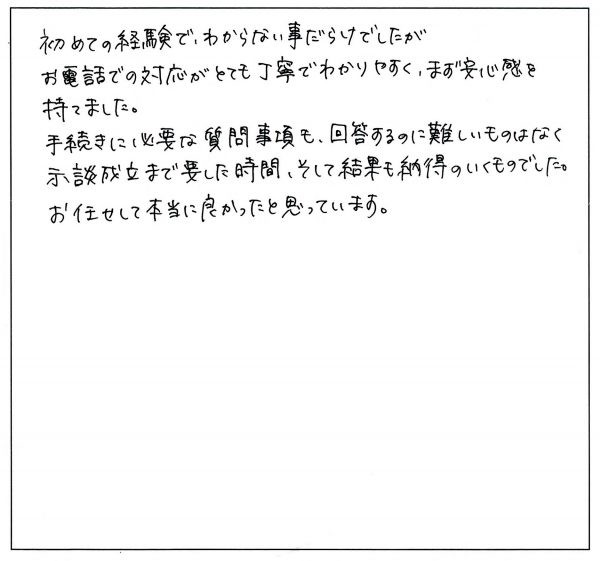 初めての経験で、わからない事だらけでしたが
お電話での対応がとても丁寧でわかりやすく、まず安心感を
持てました。
手続きに必要な質問事項も、回答するのに難しいものはなく
示談成立まで要した時間、そして結果も納得のいくものでした。
お任せして本当に良かったと思っています。